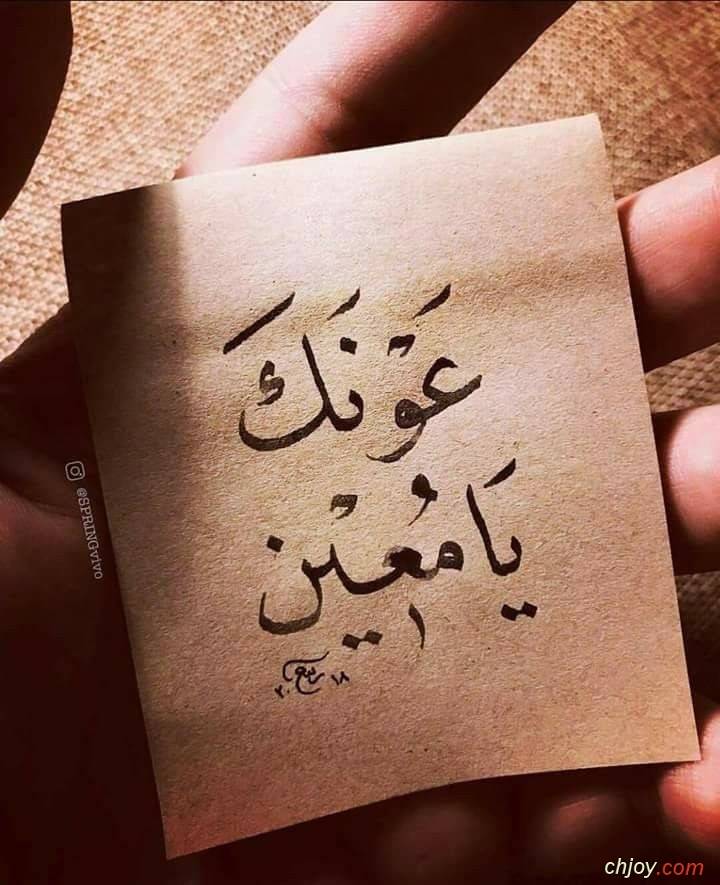 عَوْنَكَ
يَا مُعِيْن
ربيع
٢٠ ١٨
@SPRING-vivo
chjoy.com